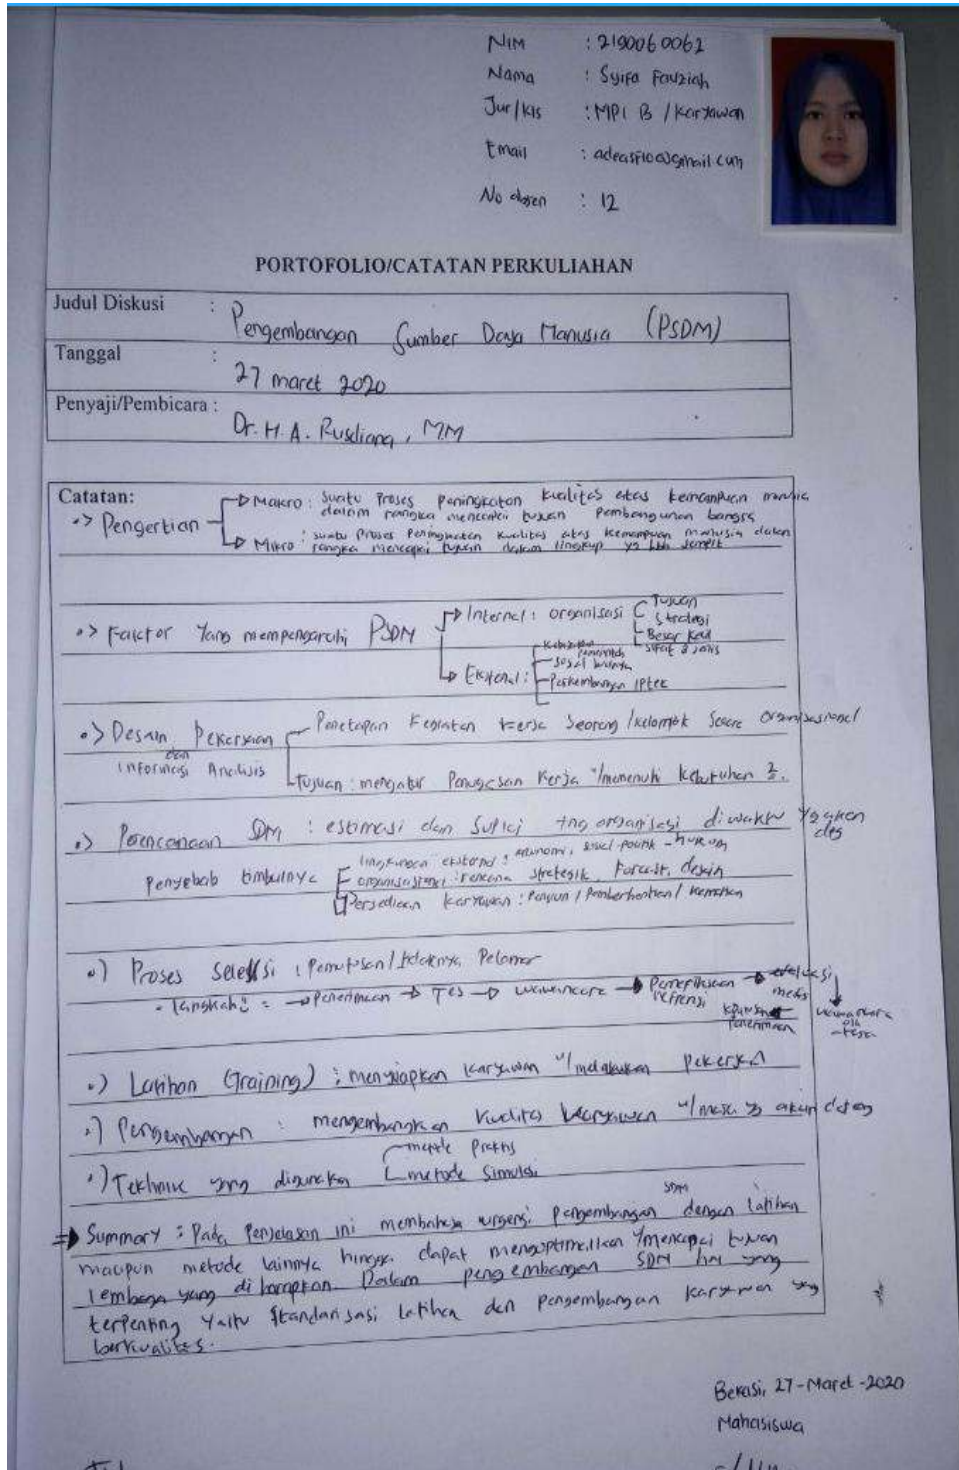 NIM : 2190060062
Nama : Syifa Fauziah
Jur/Kls : MPI B / Karyawan
Email
No absen : 12
PORTOFOLIO/CATATAN PERKULIAHAN
Judul Diskusi : Pengembangan Sumber Daya Manusia (PSDM)
Tanggal : 27 maret 2020
Penyaji/Pembicara : Dr. H. A. Rusdiana, MM
Catatan:
Makro : suatu Proses peningkatan kualitas atas kemampuan manusia
dalam rangka mencapai tujuan Pembangunan bangsa
•> Pengertian
Mikro : suatu Proses Peningkatan kualitas atas kemampuan manusia dalam
rangka mencapai tujuan dalam lingkup yg lbh sempit
•> Faktor Yang mempengaruhi PSDM
Internal : organisasi
Tujuan
Strategi
Besar Kecil
sifat & jenis
Eksternal :
Kebijakan pemerintah
sosial budaya
Perkembangan IPTEK
•> Desain Pekerjaan
dan
informasi Analisis
Penetapan Kegiatan Kerja Seorang/kelompok Secara Organisasional
Tujuan : mengatur Penugasan Kerja u/memenuhi Kebutuhan 2.
•> Perencanaan SDM : estimasi dan organisasi diwaktu yg akan
Penyebab timbulnya
lingkungan eksternal : ekonomi, sosial-politik-hukum
organisasional : rencana strategik, Forcast, desain
Persediaan Karyawan : Pensiun / Pemberhentian / kematian
•) Proses Seleksi : Pemutusan/tdaknya Pelamar
- langkah2 = → penerimaan → Tes → wawancara → Pemeriksaan refrensi → evaluasi medis
wawancara
keputusan
Penerimaan
•) Latihan (Training) : menyiapkan Karyawan u/melakukan pekerja
•) Pengembangan : mengembangkan Kualitas Karyawan u/masa yg akan datang
•) Tekhnik yang digunakan
metode Praktis
metode Simulasi
⇒ Summary : Pada Penjelasan ini membahas urgensi pengembangan SDM dengan latihan
maupun metode lainnya hingga dapat mengoptimalkan /mencapai tujuan
lembaga yang diharapkan. Dalam pengembangan SDM hal yang
terpenting yaitu Standarisasi latihan dan pengembangan karyawan yng
berkualitas.
Bekasi, 27-Maret-2020
Mahasiswa